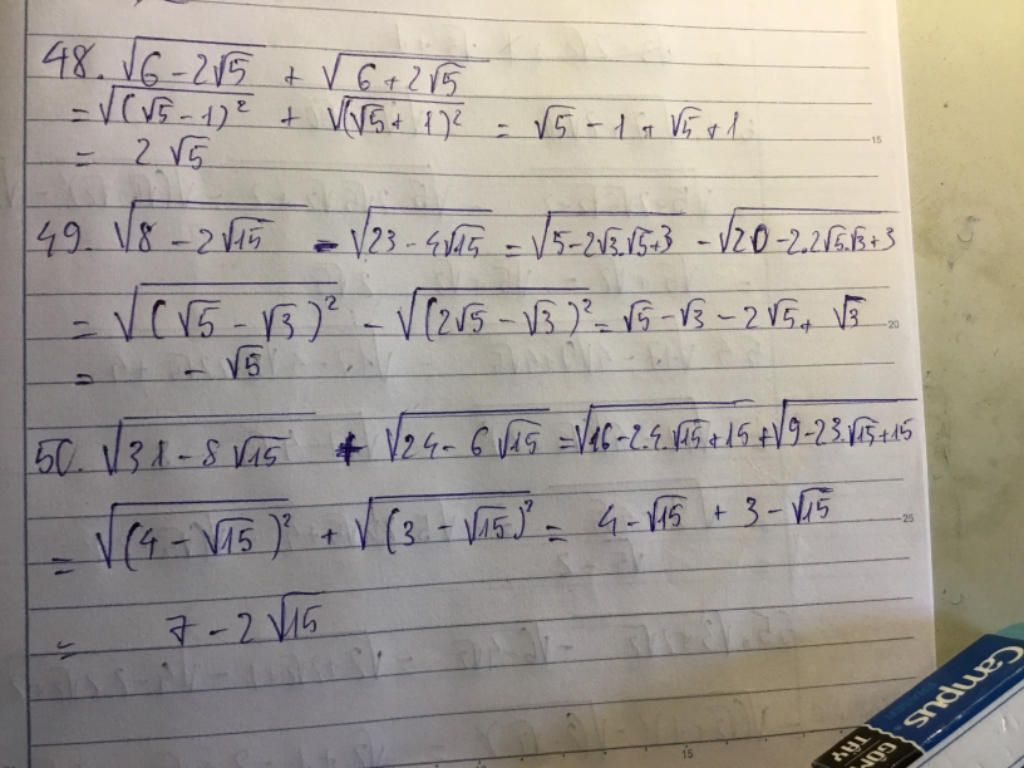 48. √(6 - 2√5) + √(6 + 2√5)
= √((√5 - 1)²) + √((√5 + 1)²) = √5 - 1 + √5 + 1
= 2√5
15
49. √(8 - 2√15) - √(23 - 4√15) = √(5 - 2√3.√5 + 3) - √(20 - 2.2√5.√3 + 3)
= √((√5 - √3)²) - √((2√5 - √3)²) = √5 - √3 - 2√5 + √3
20
= - √5
50. √(31 - 8√15) + √(24 - 6√15) = √(16 - 2.4.√15 + 15) + √(9 - 2.3.√15 + 15)
= √((4 - √15)²) + √((3 - √15)²) = 4 - √15 + 3 - √15
25
= 7 - 2√15
Campus
TẨY
15